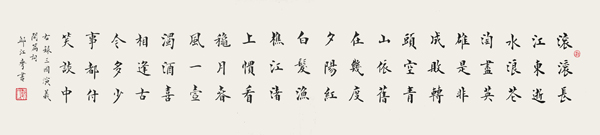 滚滚長
江東逝
水浪花
淘盡英
雄是非
成敗轉
頭空青
山依舊
在幾度
夕陽紅
白髮漁
樵江渚
上慣看
穐月春
風一壺
濁酒喜
相逢古
今多少
事都付
笑談中
右録三国演義
開篇詞
江書